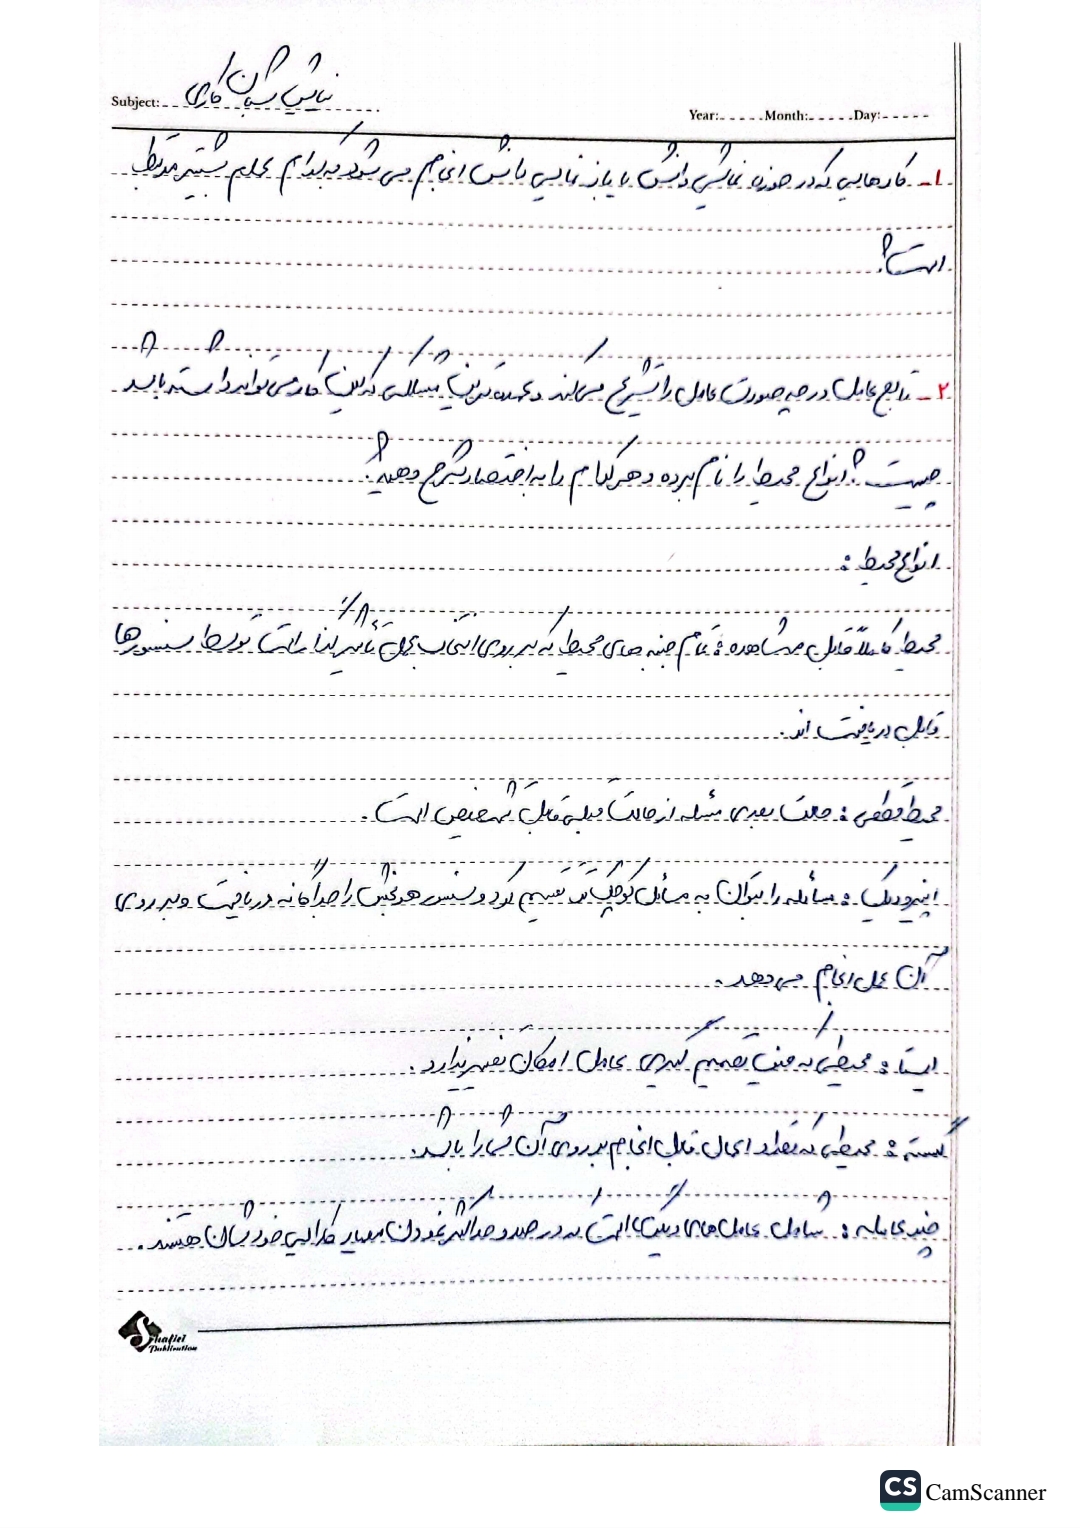 Subject:
Year: Month: Day:
۱- کارهایی که در حوزه نمایش دانش یا باز نمایی دانش انجام می شود به کدام علم بیشتر مرتبط
است؟
۲- تابع عامل در چه صورت عامل را تشریح می‌کند و عمده ترین مشکلی که این کار می تواند داشته باشد
چیست؟ انواع محیط را نام برده و هر کدام را به اختصار شرح دهید؟
انواع محیط:
محیط کاملاً قابل مشاهده: تمام جنبه های محیط که بر روی انتخاب عمل تاثیر گذار است توسط سنسورها
قابل دریافت اند.
محیط قطعی: حالت بعدی مسئله از حالت قبلی قابل تشخیص است.
اپیزودیک: مسئله را بتوان به مسائل کوچک تر تقسیم کرد و سپس هر بخش را جداگانه دریافت و بر روی
آن عمل انجام می دهد.
ایستا: محیطی که حین تصمیم گیری عامل امکان تغییر ندارد.
گسسته: محیطی که تعداد اعمال قابل انجام بر روی آن شمارا باشد.
چند عامله: شامل عامل های دیگری است که در صدد حداکثر نمودن معیار کارایی خودشان هستند.
Shafiei
Publication
CS CamScanner